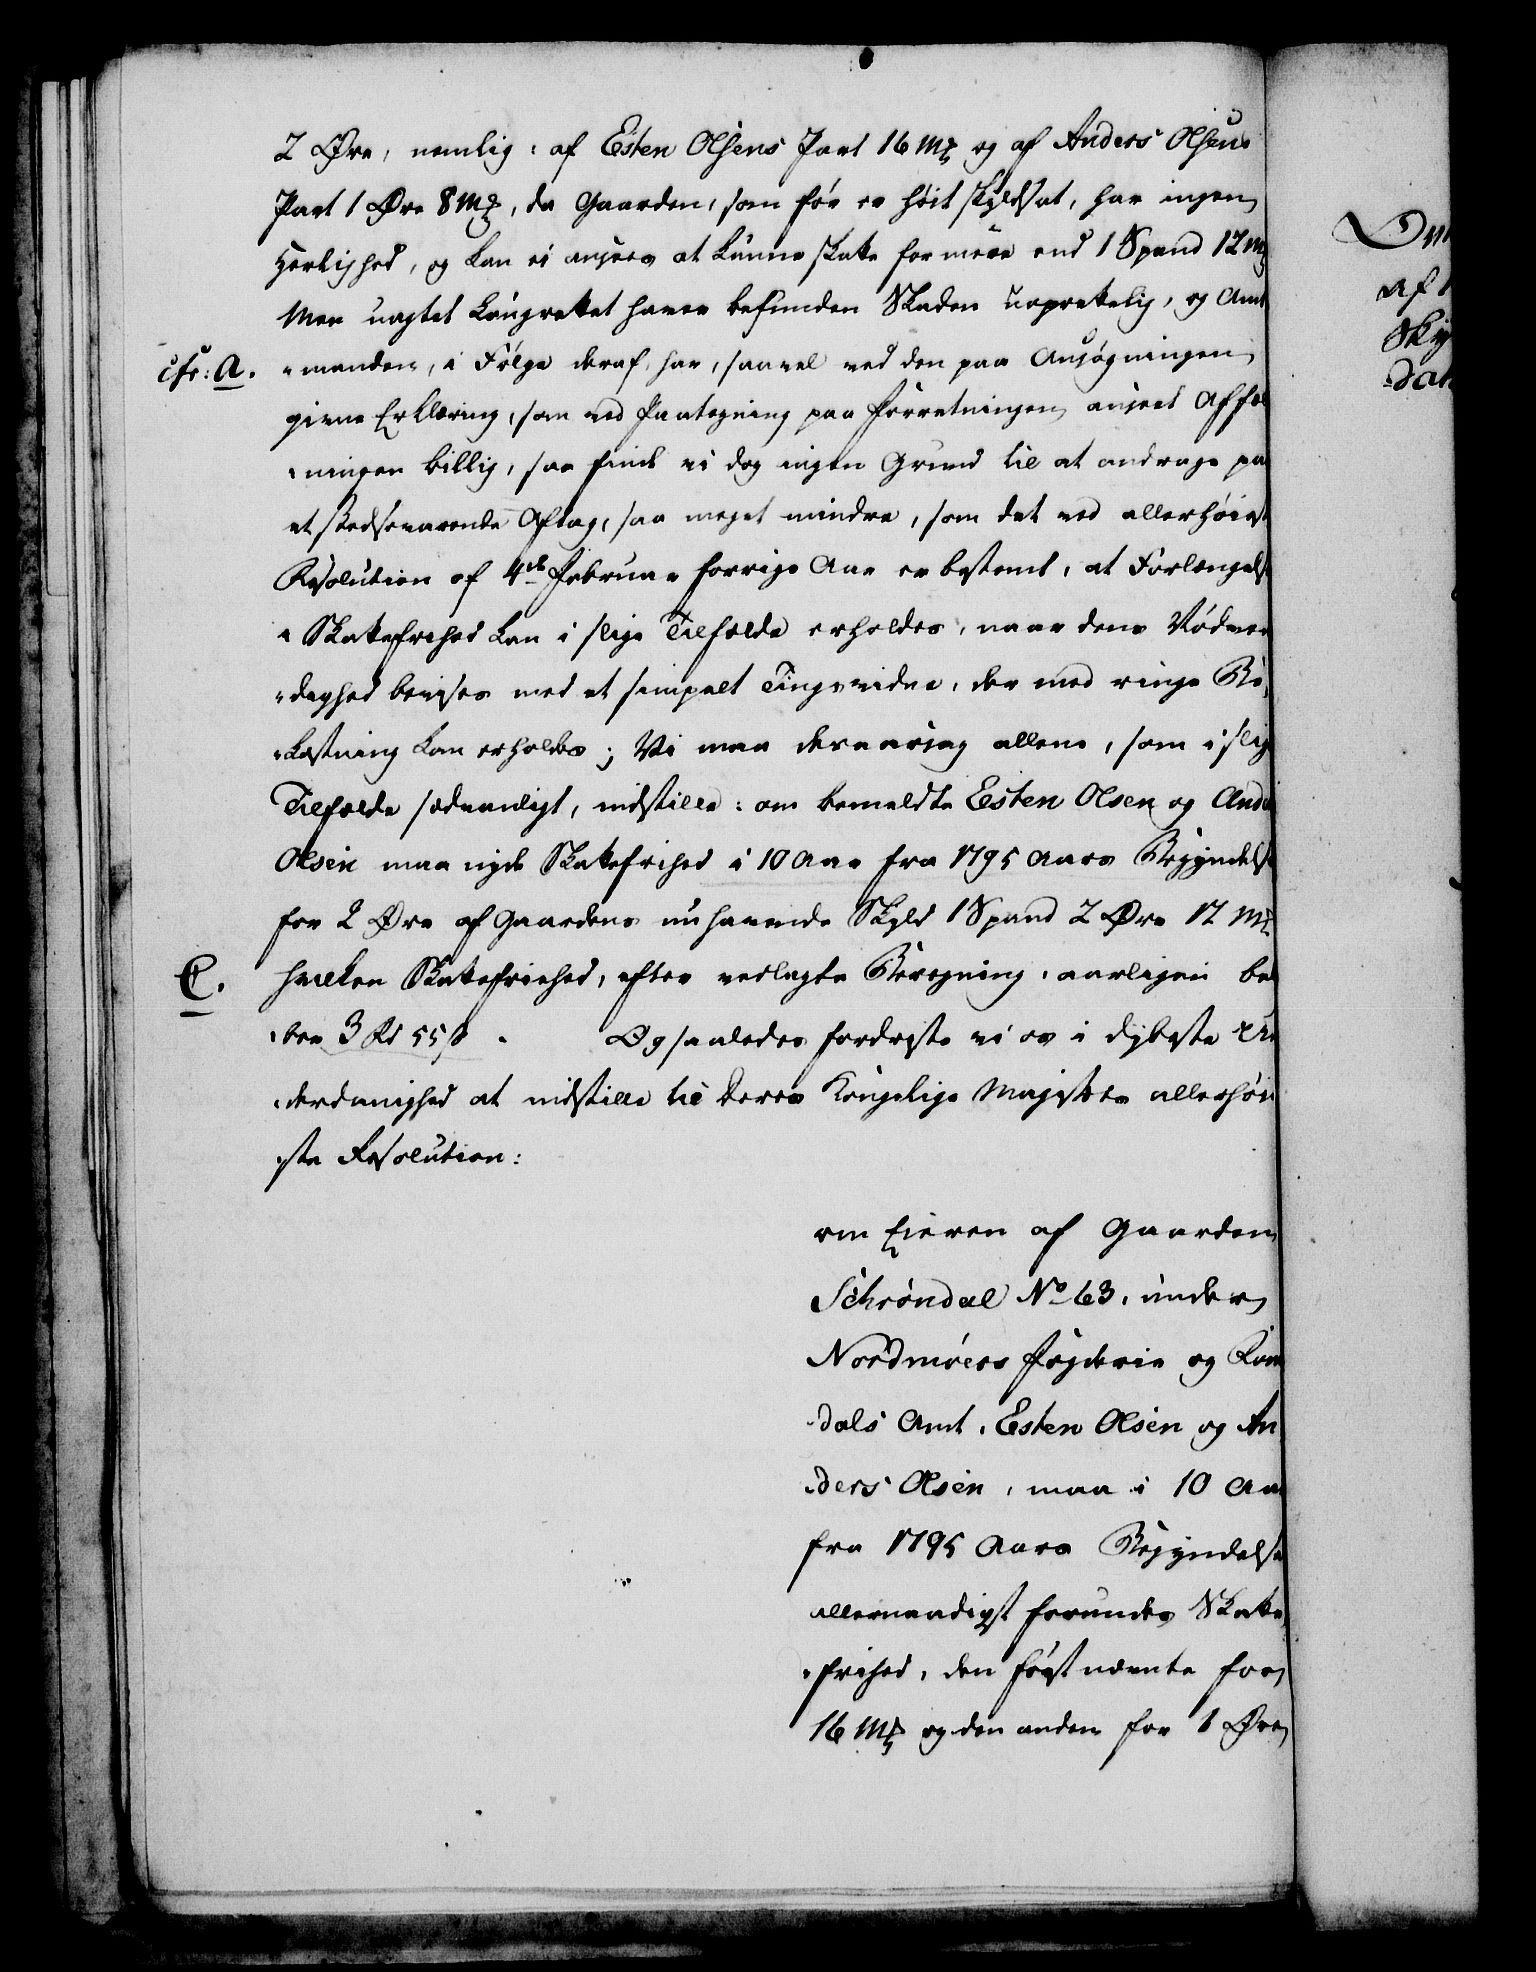 2 Øre, nemlig: af Esten Olsens Part 16 Mk og af Anders Olsens
Part 1 Øre 8 Mk, da Gaarden, som før er høit skyldsat, har ingen
Herlighed, og kan ei ansees at kunne skatte for meere end 1 Spand 12 Mk
Men uagtet Laugrettet haver befunden Skaden uoprettelig, og Amt
cfr: A. -manden, i Følge deraf, har, saavel ved den paa Ansøgningen
givne Erklæring, som ved Paategning paa Forretningen anseet Affæl
-ningen billig, saa finde vi dog ingen Grund til at andrage paa
et stedsevarende Aftag, saa meget mindre, som det ved allerhøieste
Resolution af 4de Februar forrige Aar er bestemt, at Forlængelse
i Skattefrihed kan i slige Tilfælde erholdes, naar dens Nødven
-dighed bevises med et simpelt Tingsvidne, der med ringe Be
-kostning kan erholdes; Vi maa deraarsag allene, som i slige
Tilfælde sædvanligt, indstille: om bemeldte Esten Olsen og Anders
Olsen maa nyde Skattefrihed i 10 Aar fra 1795 Aars Begyndelse
for 2 Øre af Gaardens nuhavende Skyld 1 Spand 2 Øre 12 Mk
C. hvilken Skattefriehed, efter vedlagte Beregning, aarligen belø
-ber 3 Rd 55 ß. Og saaledes fordriste vi os i dybeste Un
-derdanighed at indstille til Deres Kongelige Majestets allerhøie
-ste Resolution:
om Eieren af Gaarden
Schrøndal No 63, under
Nordmøers Fogderie og Roms
-dals Amt, Esten Olsen og An
-ders Olsen, maa i 10 Aar
fra 1795 Aars Begyndelse
allernaadigst forundes Skatte
-frihed, den først nævnte for
16 Mk og den anden for 1 Øre
af
Sky